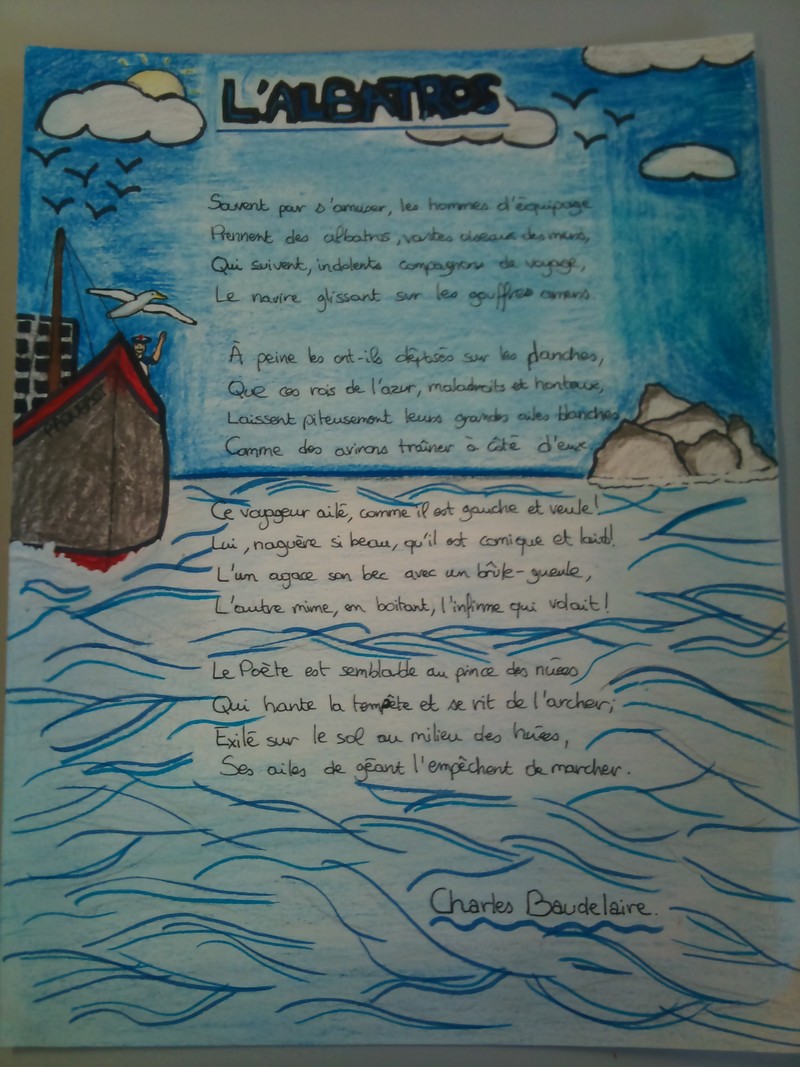 L'ALBATROS
Souvent par s'amuser, les hommes d'équipage
Prennent des albatros, vastes oiseaux des mers,
Qui suivent, indolents compagnons de voyage,
Le navire glissant sur les gouffres amers.
À peine les ont-ils déposés sur les planches,
Que ces rois de l'azur, maladroits et honteux,
Laissent piteusement leurs grandes ailes blanches
Comme des avirons traîner à côté d'eux.
Ce voyageur ailé, comme il est gauche et veule!
Lui, naguère si beau, qu'il est comique et laid!
L'un agace son bec avec un brûle-gueule,
L'autre mime, en boitant, l'infirme qui volait!
Le Poète est semblable au prince des nuées
Qui hante la tempête et se rit de l'archer;
Exilé sur le sol au milieu des huées,
Ses ailes de géant l'empêchent de marcher.
Charles Baudelaire.